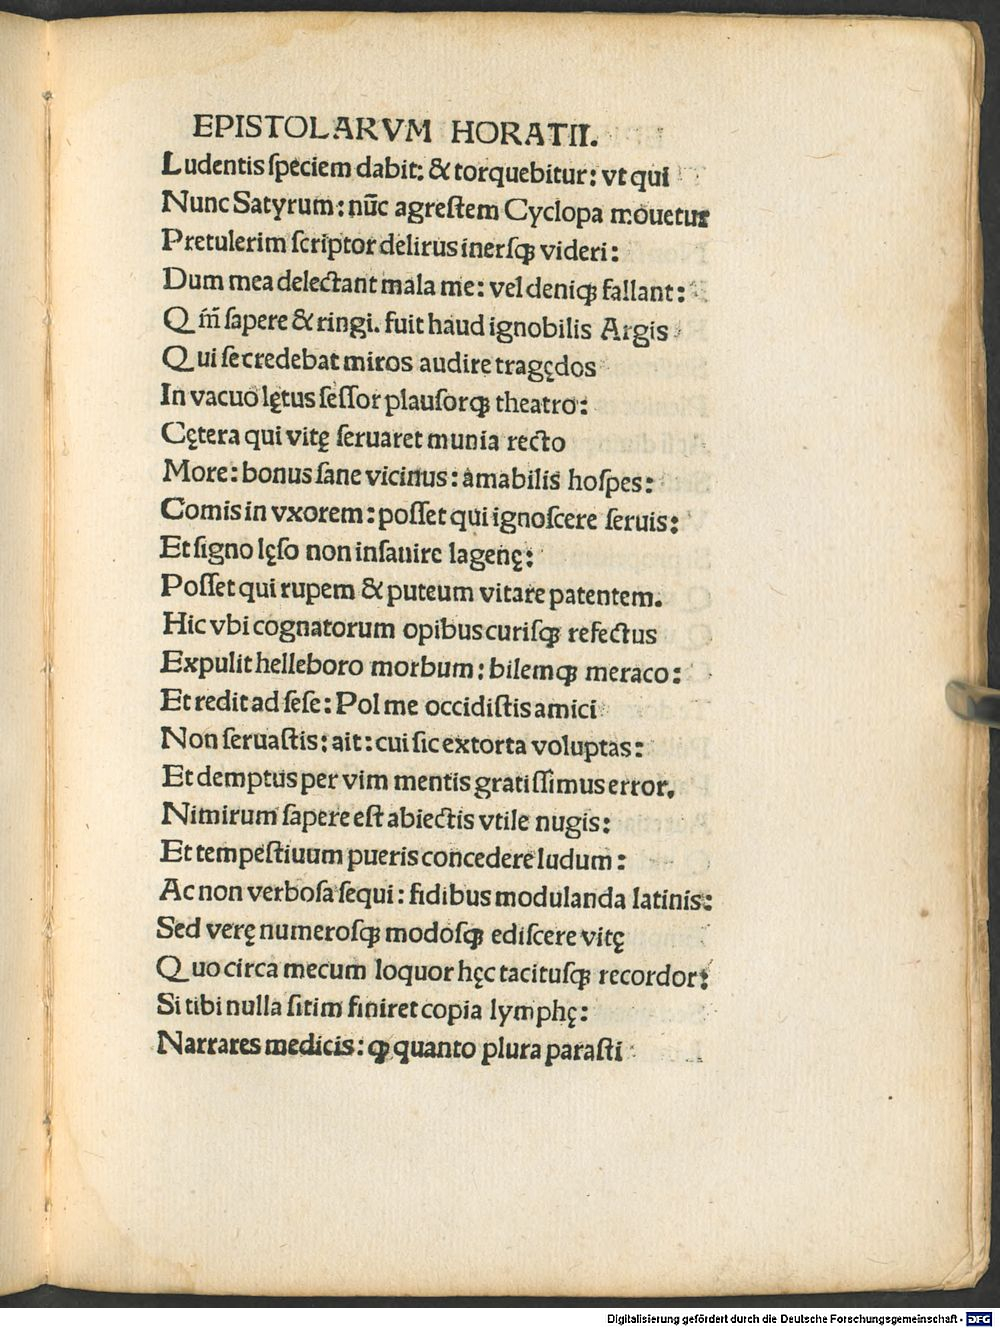 EPISTOLARVM HORATII.
Ludentis ſpeciem dabit: & torquebitur: vt qui
Nunc Satyrum: nūc agreſtem Cyclopa mouetur
Pretulerim ſcriptor delirus inerſqꝫ videri:
Dum mea delectant mala me: vel deniqꝫ fallant:
Q m̄ ſapere & ringi. fuit haud ignobilis Argis
Qui ſe credebat miros audire tragędos
In vacuo lętus ſeſſor plauſorqꝫ theatro:
Cętera qui vitę ſeruaret munia recto
More: bonus ſane vicinus: amabilis hoſpes:
Comis in vxorem: poſſet qui ignoſcere ſeruis:
Et ſigno lęſo non inſanire lagenę:
Poſſet qui rupem & puteum vitare patentem.
Hic vbi cognatorum opibus curiſqꝫ refectus
Expulit helleboro morbum: bilemqꝫ meraco:
Et redit ad ſeſe: Pol me occidiſtis amici
Non ſeruaſtis: ait: cui ſic extorta voluptas:
Et demptus per vim mentis gratiſſimus error.
Nimirum ſapere eſt abiectis vtile nugis:
Et tempeſtiuum pueris concedere ludum:
Ac non verboſa ſequi: fidibus modulanda latinis:
Sed verę numeroſqꝫ modoſqꝫ ediſcere vitę
Quo circa mecum loquor hęc tacituſqꝫ recordor:
Si tibi nulla ſitim finiret copia lymphę:
Narrares medicis: qꝫ quanto plura paraſti
Digitalisierung gefördert durch die Deutsche Forschungsgemeinschaft - DFG